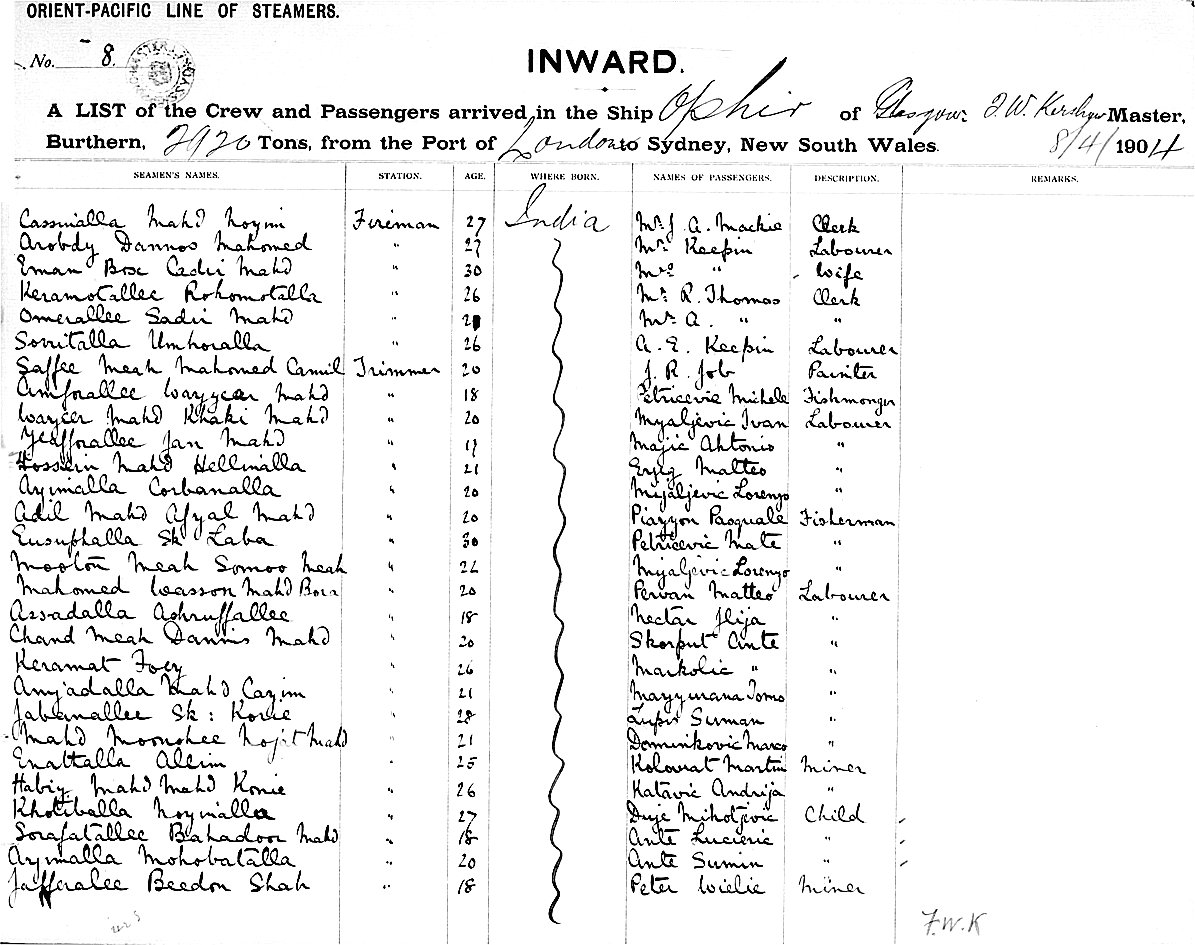 ORIENT-PACIFIC LINE OF STEAMERS.
No. 8.
INWARD.
A LIST of the Crew and Passengers arrived in the Ship Ophir of Glasgow. Master,
Burthern, 2920 Tons, from the Port of London to Sydney, New South Wales. 8/4/1904
SEAMEN'S NAMES. STATION. AGE. WHERE BORN. NAMES OF PASSENGERS. DESCRIPTION. REMARKS.
Cassimalla Mahd Noyim Fireman 27 India Mr J. A. Mackie Clerk
Arobdy Dannos Mahomed " 27 Mr Keepin Labourer
Eman Box Cadir Mahd " 30 Mrs " Wife
Keramotallee Rohomotalla " 26 Mr R. Thomas Clerk
Omerallee Sadir Mahd " Mr A. " "
Sovritalla Umhoralla " 26 A. E. Keepin Labourer
Saffee Meah Mahomed Camil Trimmer 20 J. R. Job Painter
Amforallee Wayyear Mahd " 18 Petricevic Michele Fishmonger
Wayeer Mahd Khaki Mahd " 20 Myaljevic Ivan Labourer
Jan Mahd " Majic Antonio "
Hossein Mahd Hellimalla " 21 Matteo "
Ayimalla Corbanalla " 20 Mijaljevic Lorenzo "
Adil Mahd Afyal Mahd " 20 Piayyon Pasquale Fisherman
Eusuphalla Sk Laba " 30 Petricevic Mate "
Mooton Meah Somoo Meah " 22 Myaljevic Lorenzo "
Mahomed Wasson Mahd Bora " 20 Pervan Matteo Labourer
Assadalla Ashruffallee " 18 Nectar Ilija "
Chand Meah Dannis Mahd " 20 Skorput Ante "
Keramat Foey " 26 Markolic " "
Amjadalla Mahd Cayim " 21 Mayyurana Tomo "
Jabanallee Sk: Konie " 28 Lupis Suman "
Mahd Moonshee Nojit Mahd " 21 Dominkovic Marco "
Enattalla Allim " 25 Kolovrat Martin Miner
Habiy Mahd Mahd Konie " 26 Katavic Andrija "
Khotiballa Noymalla " 27 Duje Mihotjevic Child
Sorafatallee Bahadoor Mahd " 18 Ante Lucieric "
Ayimalla Mohobatalla " 20 Ante Sumin "
Jafferalee Beedon Shah " 18 Peter Wielie Miner
F.W.K